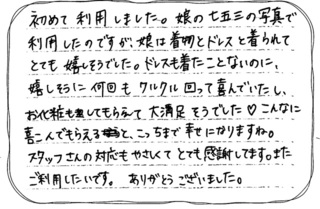 初めて利用しました。娘の七五三の写真で
利用したのですが、娘は着物とドレスと着られて
とても嬉しそうでした。ドレスも着たことないのに、
嬉しそうに何回もクルクル回って喜んでいたし、
お化粧も星してもらって大満足そうでした♡こんなに
喜こんでもらえると、こっちまで幸せになりますね。
スタッフさんの対応もやさしくてとても感謝してます。また
ご利用したいです。ありがとうございました。